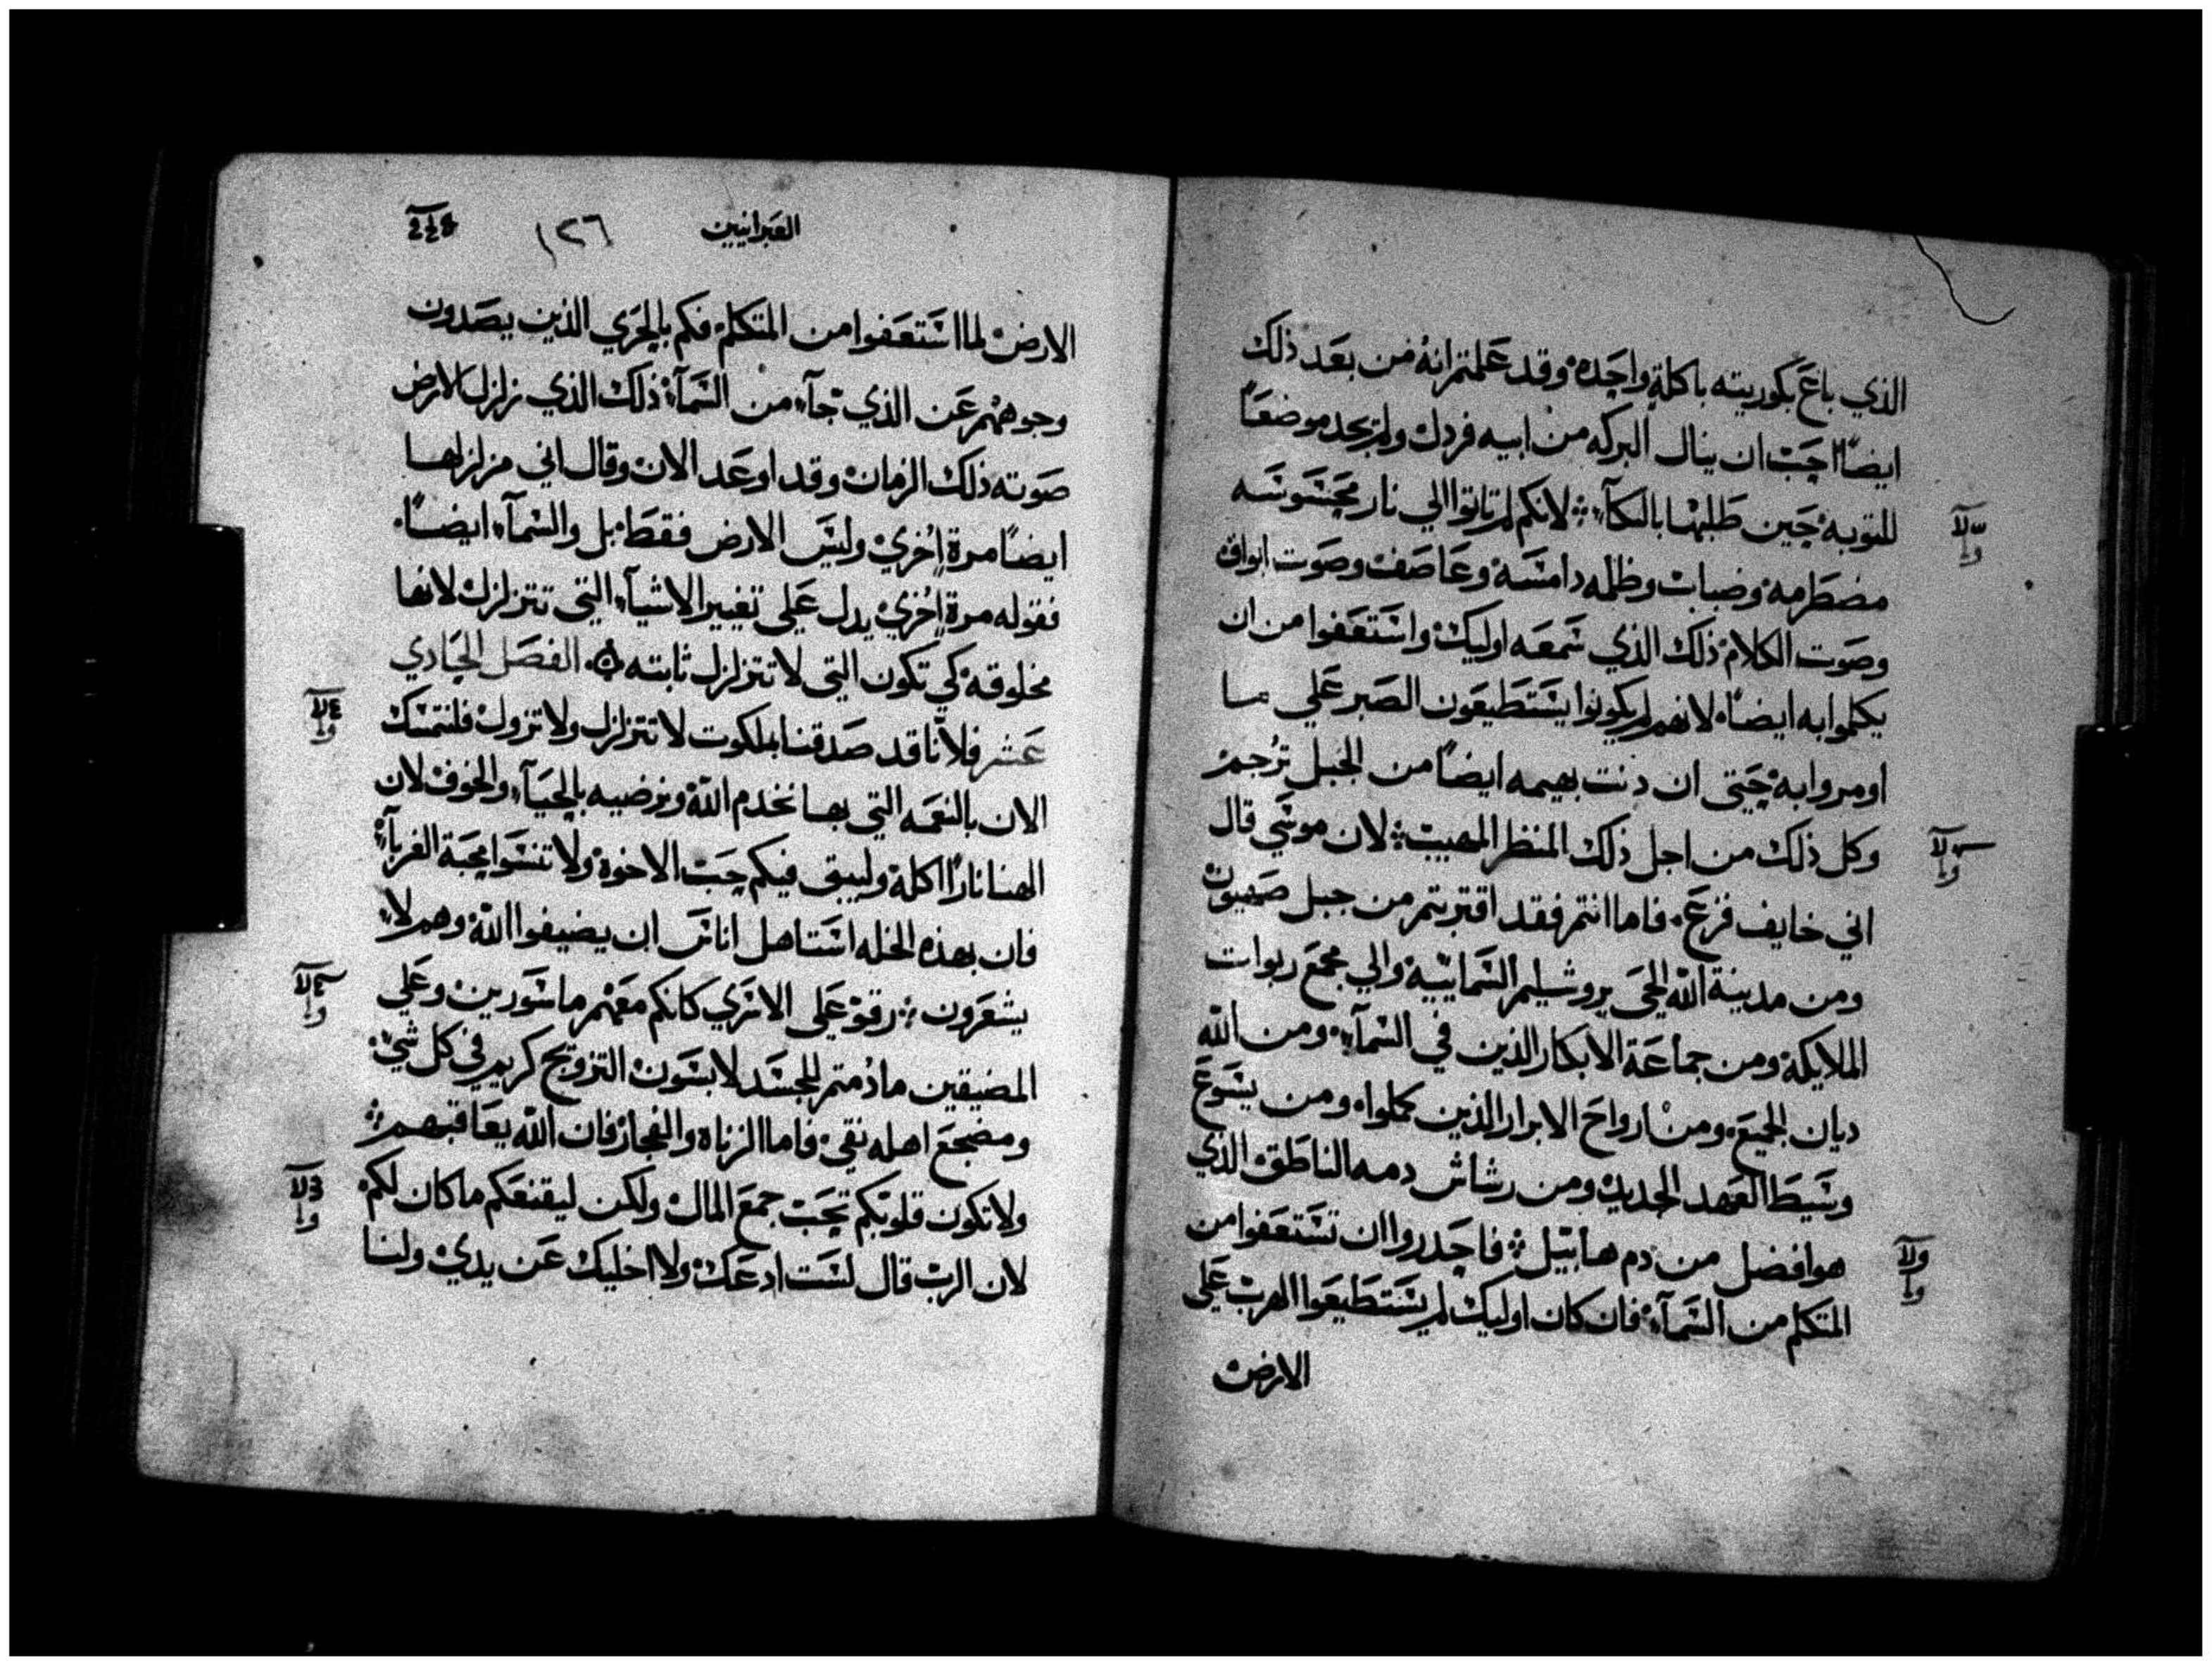 الذي باع بكوريته باكلة واحده وقد علمتم انه من بعد ذلك
ايضًا احب ان ينال البركه من ابيه فرذل ولم يجد موضعًا
للتوبه حين طلبها بالبكآء لانكم لم تاتوا الي نار محسوسه
مضطرمه وضباب وظلمه دامسه وعاصف وصوت ابواق
وصوت الكلام ذلك الذي سمعه اوليك واستعفوا من ان
يكلموا به ايضًا لانهم لم يكونوا يستطيعون الصبر علي ما
اومروا به حتي ان دنت بهيمه ايضًا من الجبل تُرجم
وكل ذلك من اجل ذلك المنظر المهيب لان موسي قال
اني خايف فزع فاما انتم فقد اقتربتم من جبل صهيون
ومن مدينة الله الحي يروشليم السمايية والي مجمع ربوات
الملايكة ومن جماعة الابكار الذين في السمآء ومن الله
ديان الجميع ومن ارواح الابرار الذين كملوا ومن يسوع
وسيط العهد الجديد ومن رشاش دمه الناطق الذي
هو افضل من دم هابيل فاحدروا ان تستعفوا من
المتكلم من السمآء فان كان اوليك لم يستطيعوا الهرب علي
الارض
العبرانيين
١٢٦
الارض لما استعفوا من المتكلم فكم بالحري الذين يصدون
وجوههم عن الذي جآء من السمآء ذلك الذي زلزل الارض
صوته ذلك الزمان وقد اوعد الان وقال اني مزلزلها
ايضًا مرة اخري وليس الارض فقط بل والسمآء ايضًا
فقوله مرة اخري يدل علي تغيير الاشيآء التي تتزلزل لانها
مخلوقه كي تكون التي لا تتزلزل ثابته الفصل الحادي
عشر فلانا قد صدقنا بملكوت لا تتزلزل ولا تزول فلنتمسك
الان بالنعمه التي بها نخدم الله ونرضيه بالحيآء والخوف لان
الهنا نارًا اكلة وليبقى فيكم حب الاخوة ولا تنسوا محبة الغربآء
فان بهذه الخله استاهل اناس ان يضيفوا الله وهم لا
يشعرون رقو علي الاسري كانكم معهم ماسورين وعلي
المضيقين ما دُمتم للجسد لابسون التزويج كريم في كل شي
ومضجع اهله نقي فاما الزناة والفجار فان الله يعاقبهم
ولا تكون قلوبكم تحب جمع المال ولكن ليقنعكم ما كان لكم
لان الرب قال لست ادعك ولا اخليك عن يدي ولنا